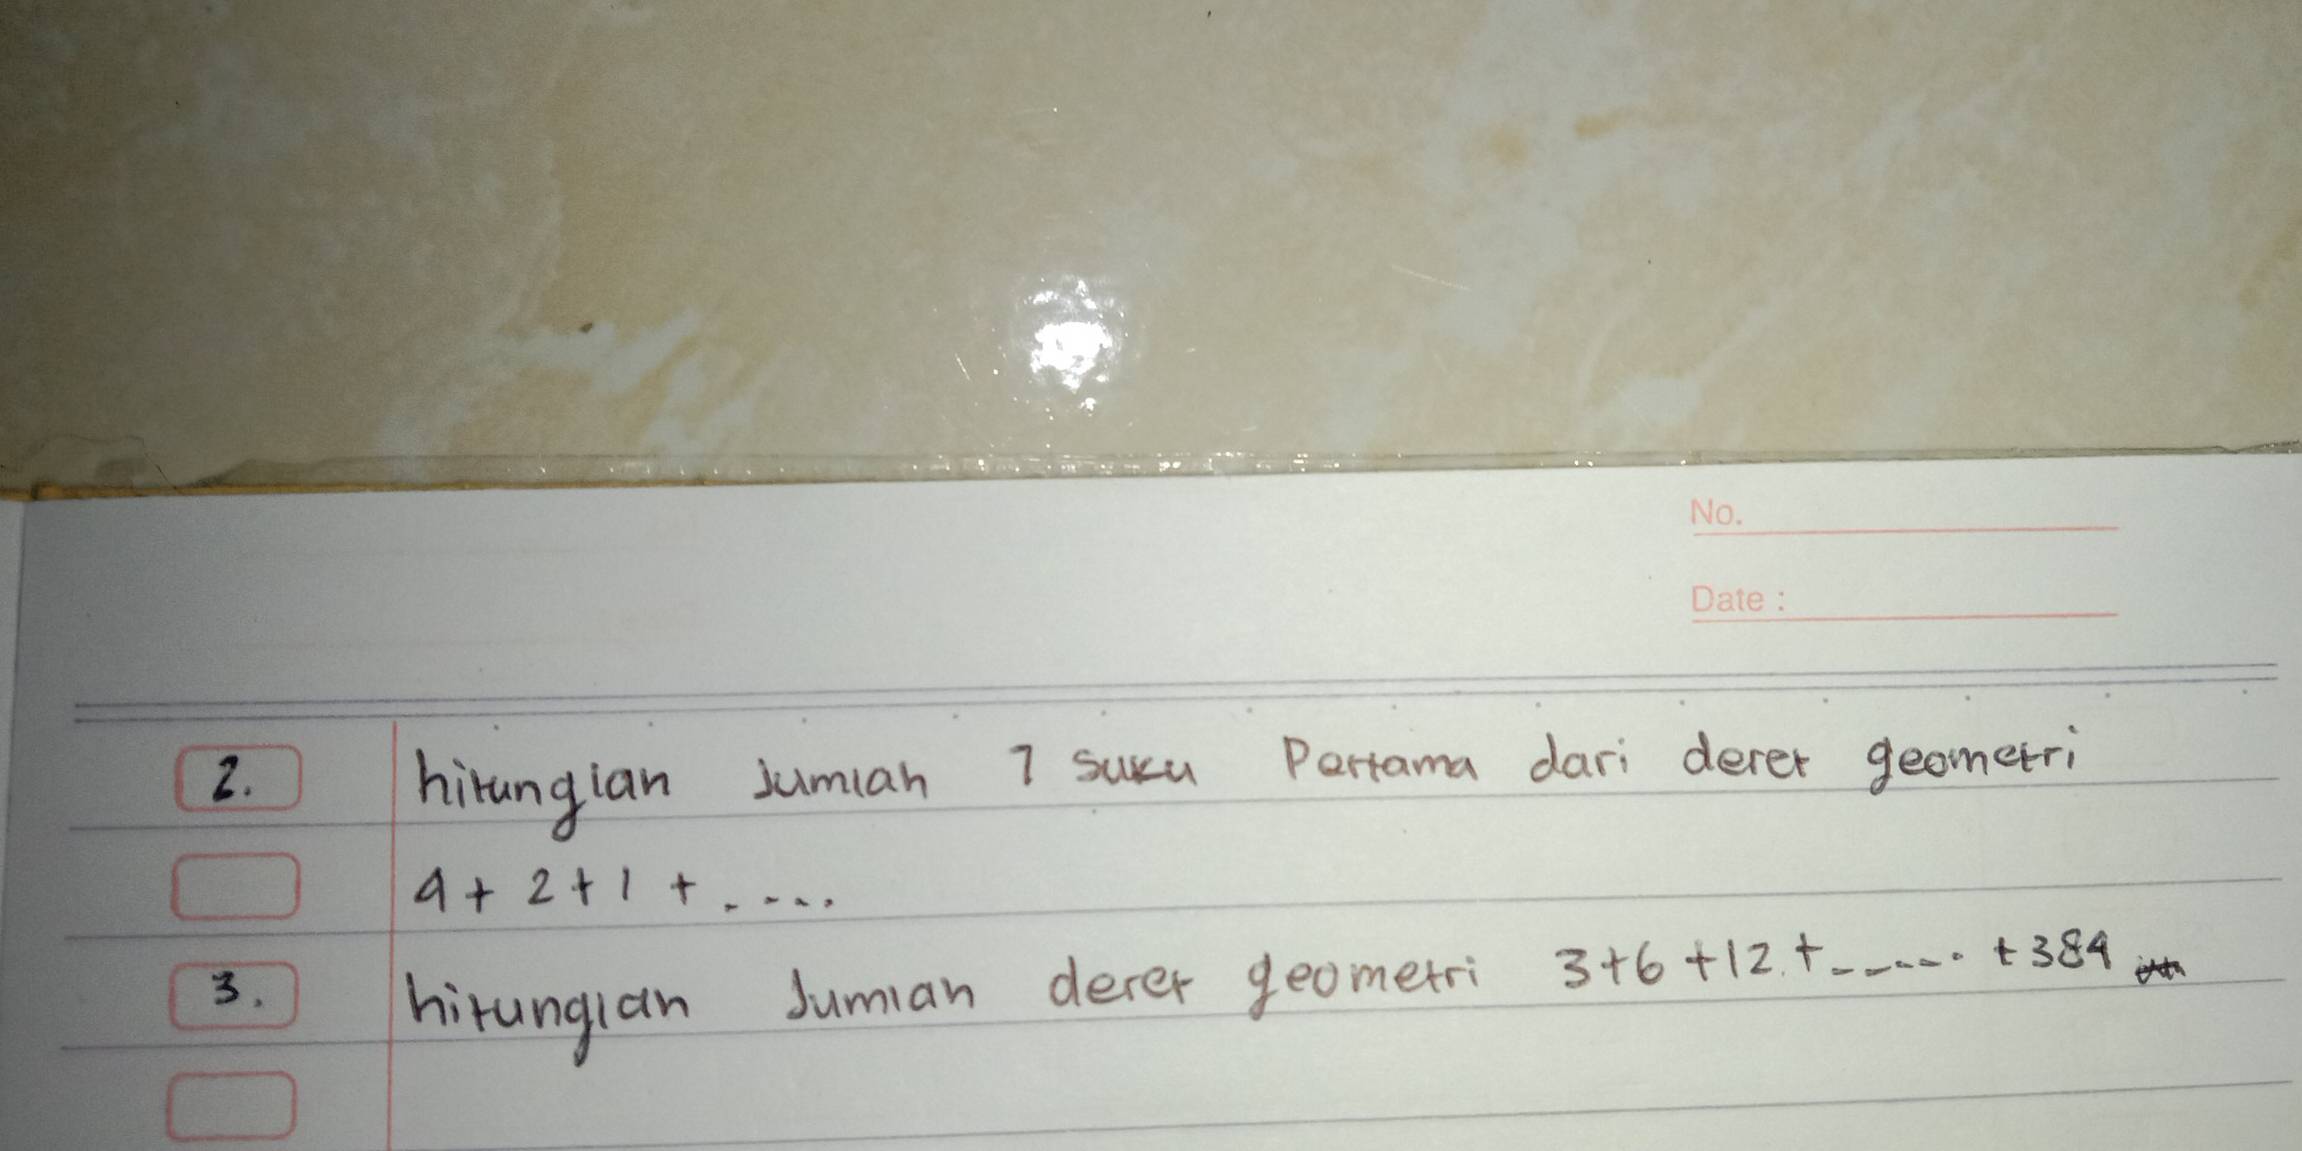 No.
Date :
2. hitunglah Jumlah 7 suku Pertama dari deret geometri
4 + 2 + 1 + .....
3. hitunglah Jumlah deret geometri 3+6+12+...... +384